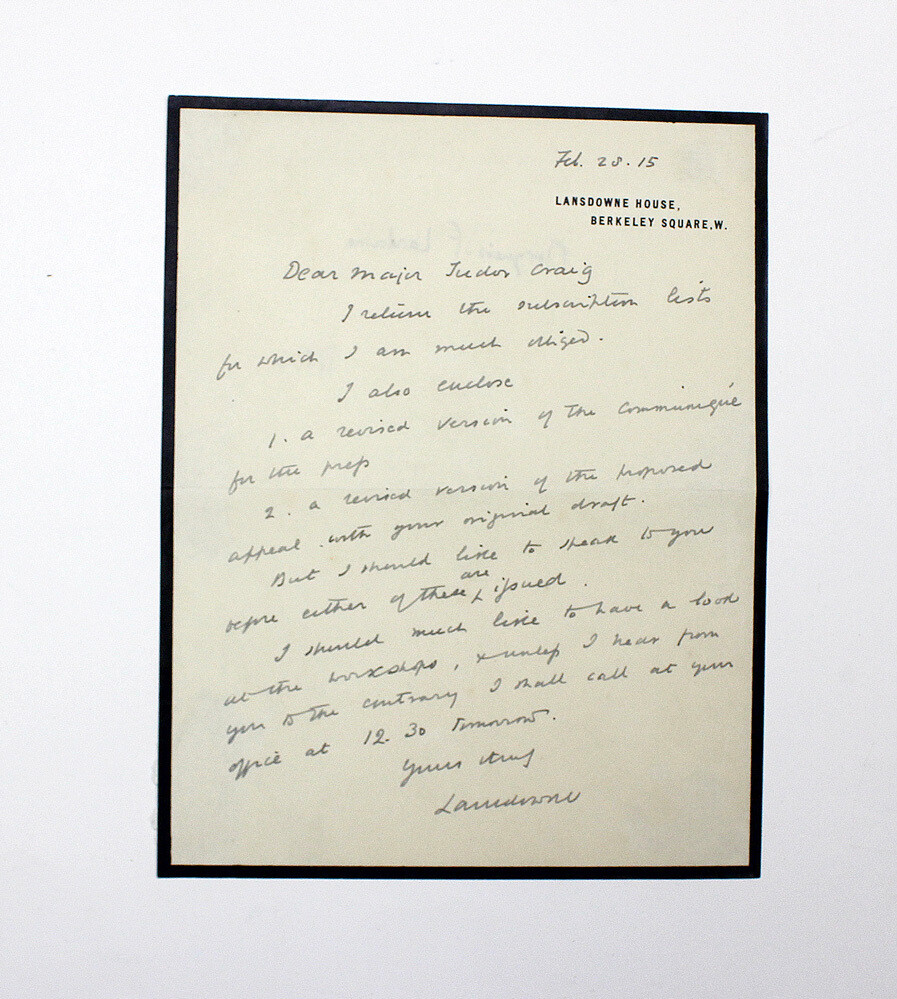 Feb. 28. 15
LANSDOWNE HOUSE,
BERKELEY SQUARE, W.
Dear Major Tudor Craig
I return the subscription lists
for which I am much obliged.
I also enclose
1. a revised version of the communiqué
for the press
2. a revised version of the proposed
appeal with your original draft.
But I should like to speak to you
are
before either of these ⁁ issued.
I should much like to have a look
at the workshops, & unless I hear from
you to the contrary I shall call at your
office at 12.30 tomorrow.
Yours truly
Lansdowne